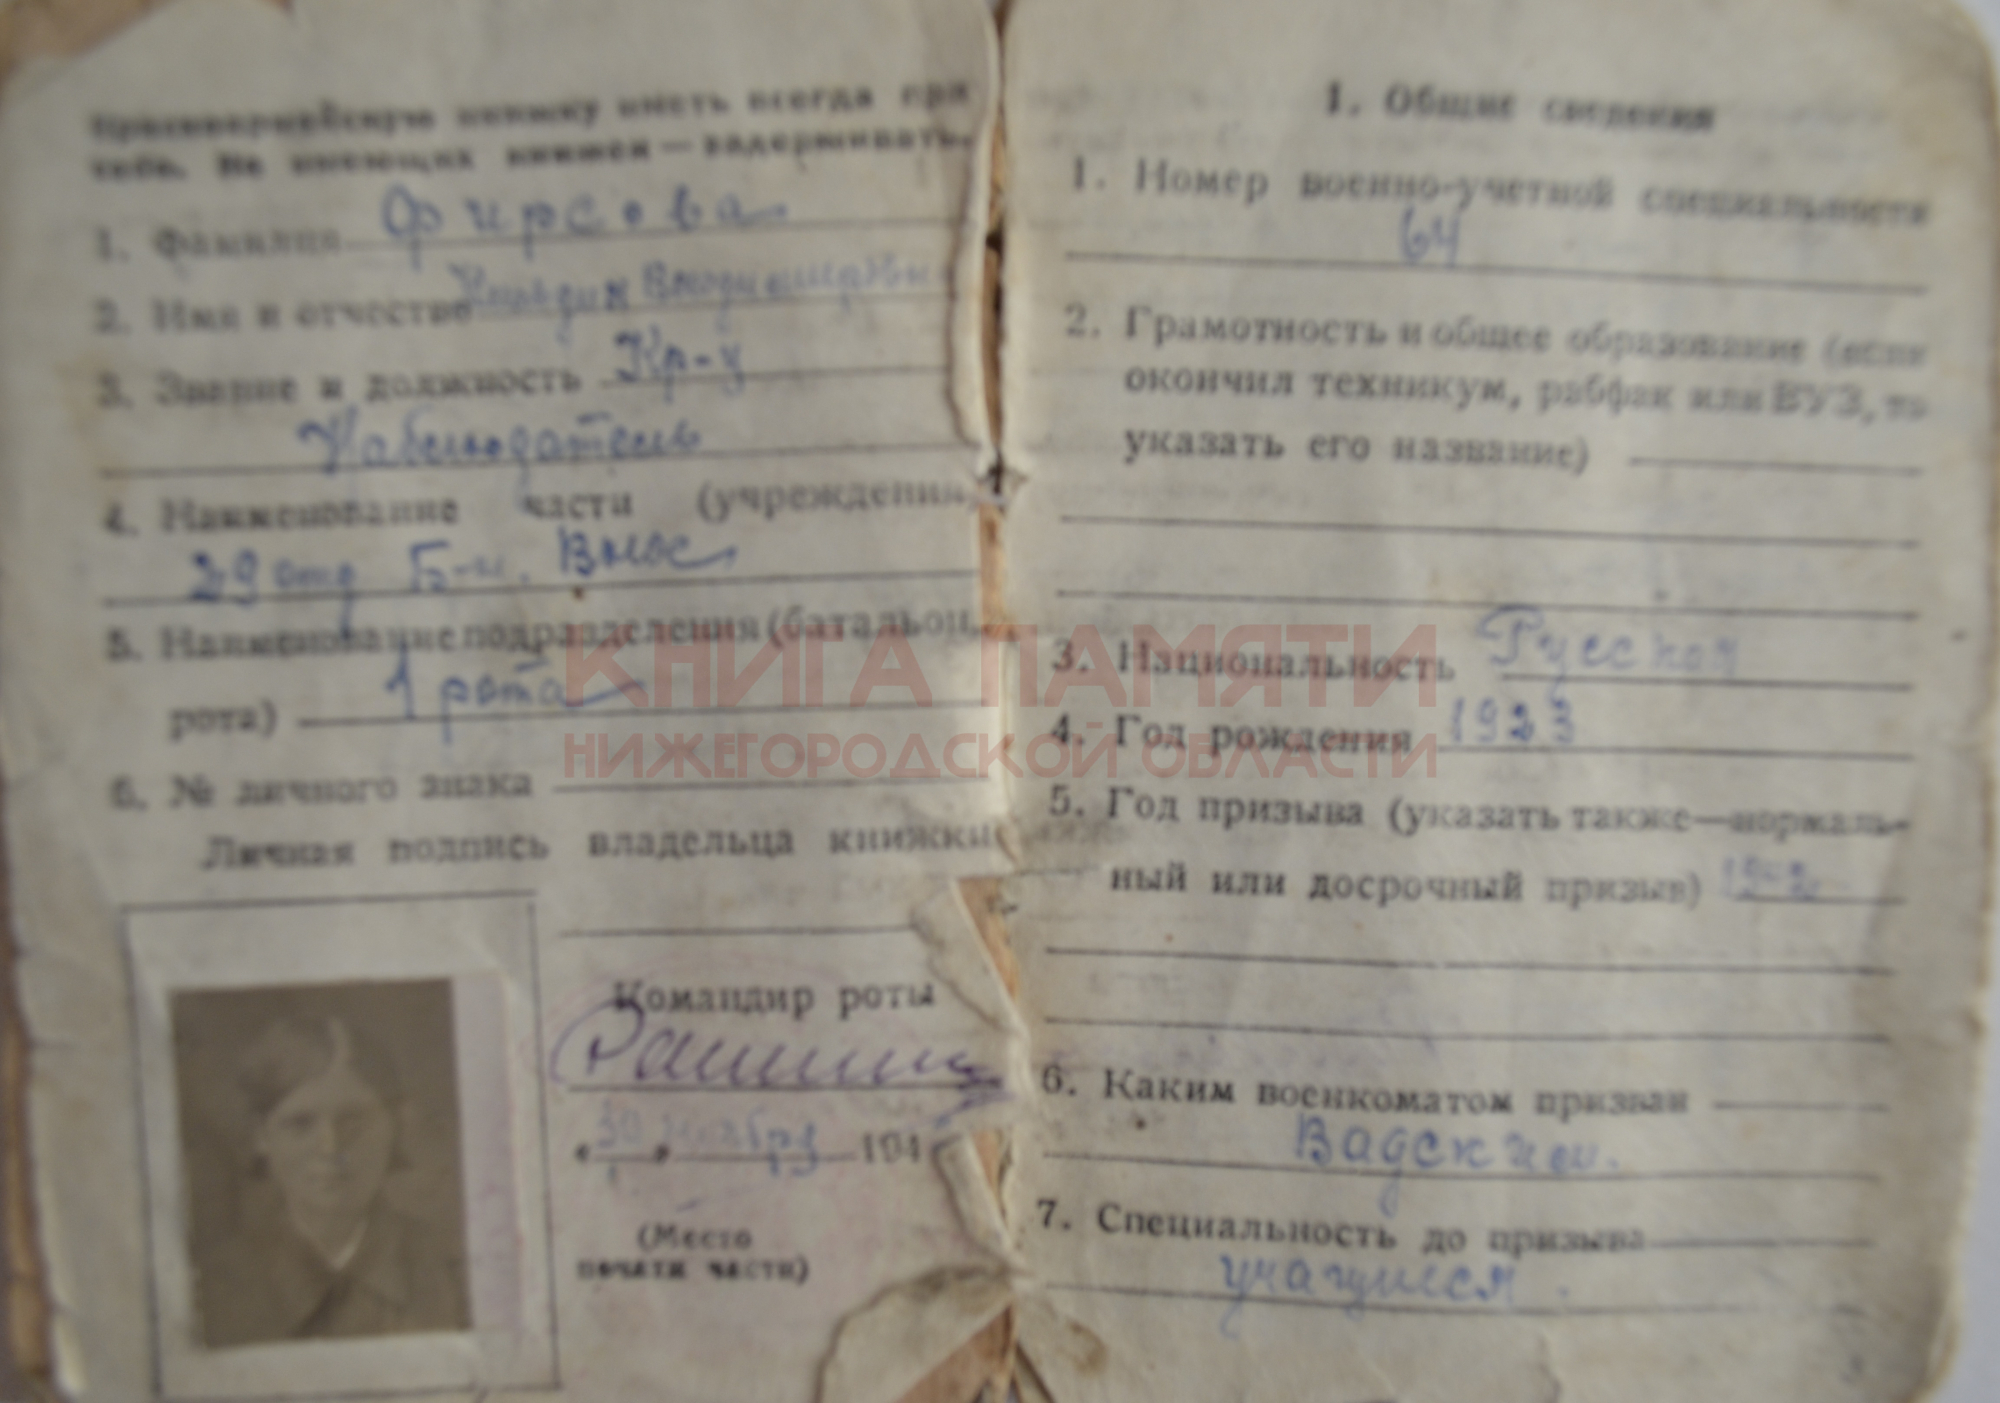 Красноармейскую книжку иметь всегда при
себе. Не имеющих книжек — задерживать.
1. Фамилия Фирсова
2. Имя и отчество
3. Звание и должность Кр-ц
Наблюдатель
4. Наименование части (учреждения)
29 отд Б-н. Внос
5. Наименование подразделения (батальон,
рота) 1 рота
6. № личного знака
Личная подпись владельца книжки
Командир роты
« 30 » ноября 194
(Место
печати части)
1. Общие сведения
1. Номер военно-учетной специальности
64
2. Грамотность и общее образование (если
окончил техникум, рабфак или ВУЗ, то
указать его название)
3. Национальность Русская
4. Год рождения 1923
5. Год призыва (указать также—нормаль-
ный или досрочный призыв) 1942
6. Каким военкоматом призван
Вадским.
7. Специальность до призыва
учащийся.
КНИГА ПАМЯТИ
НИЖЕГОРОДСКОЙ ОБЛАСТИ